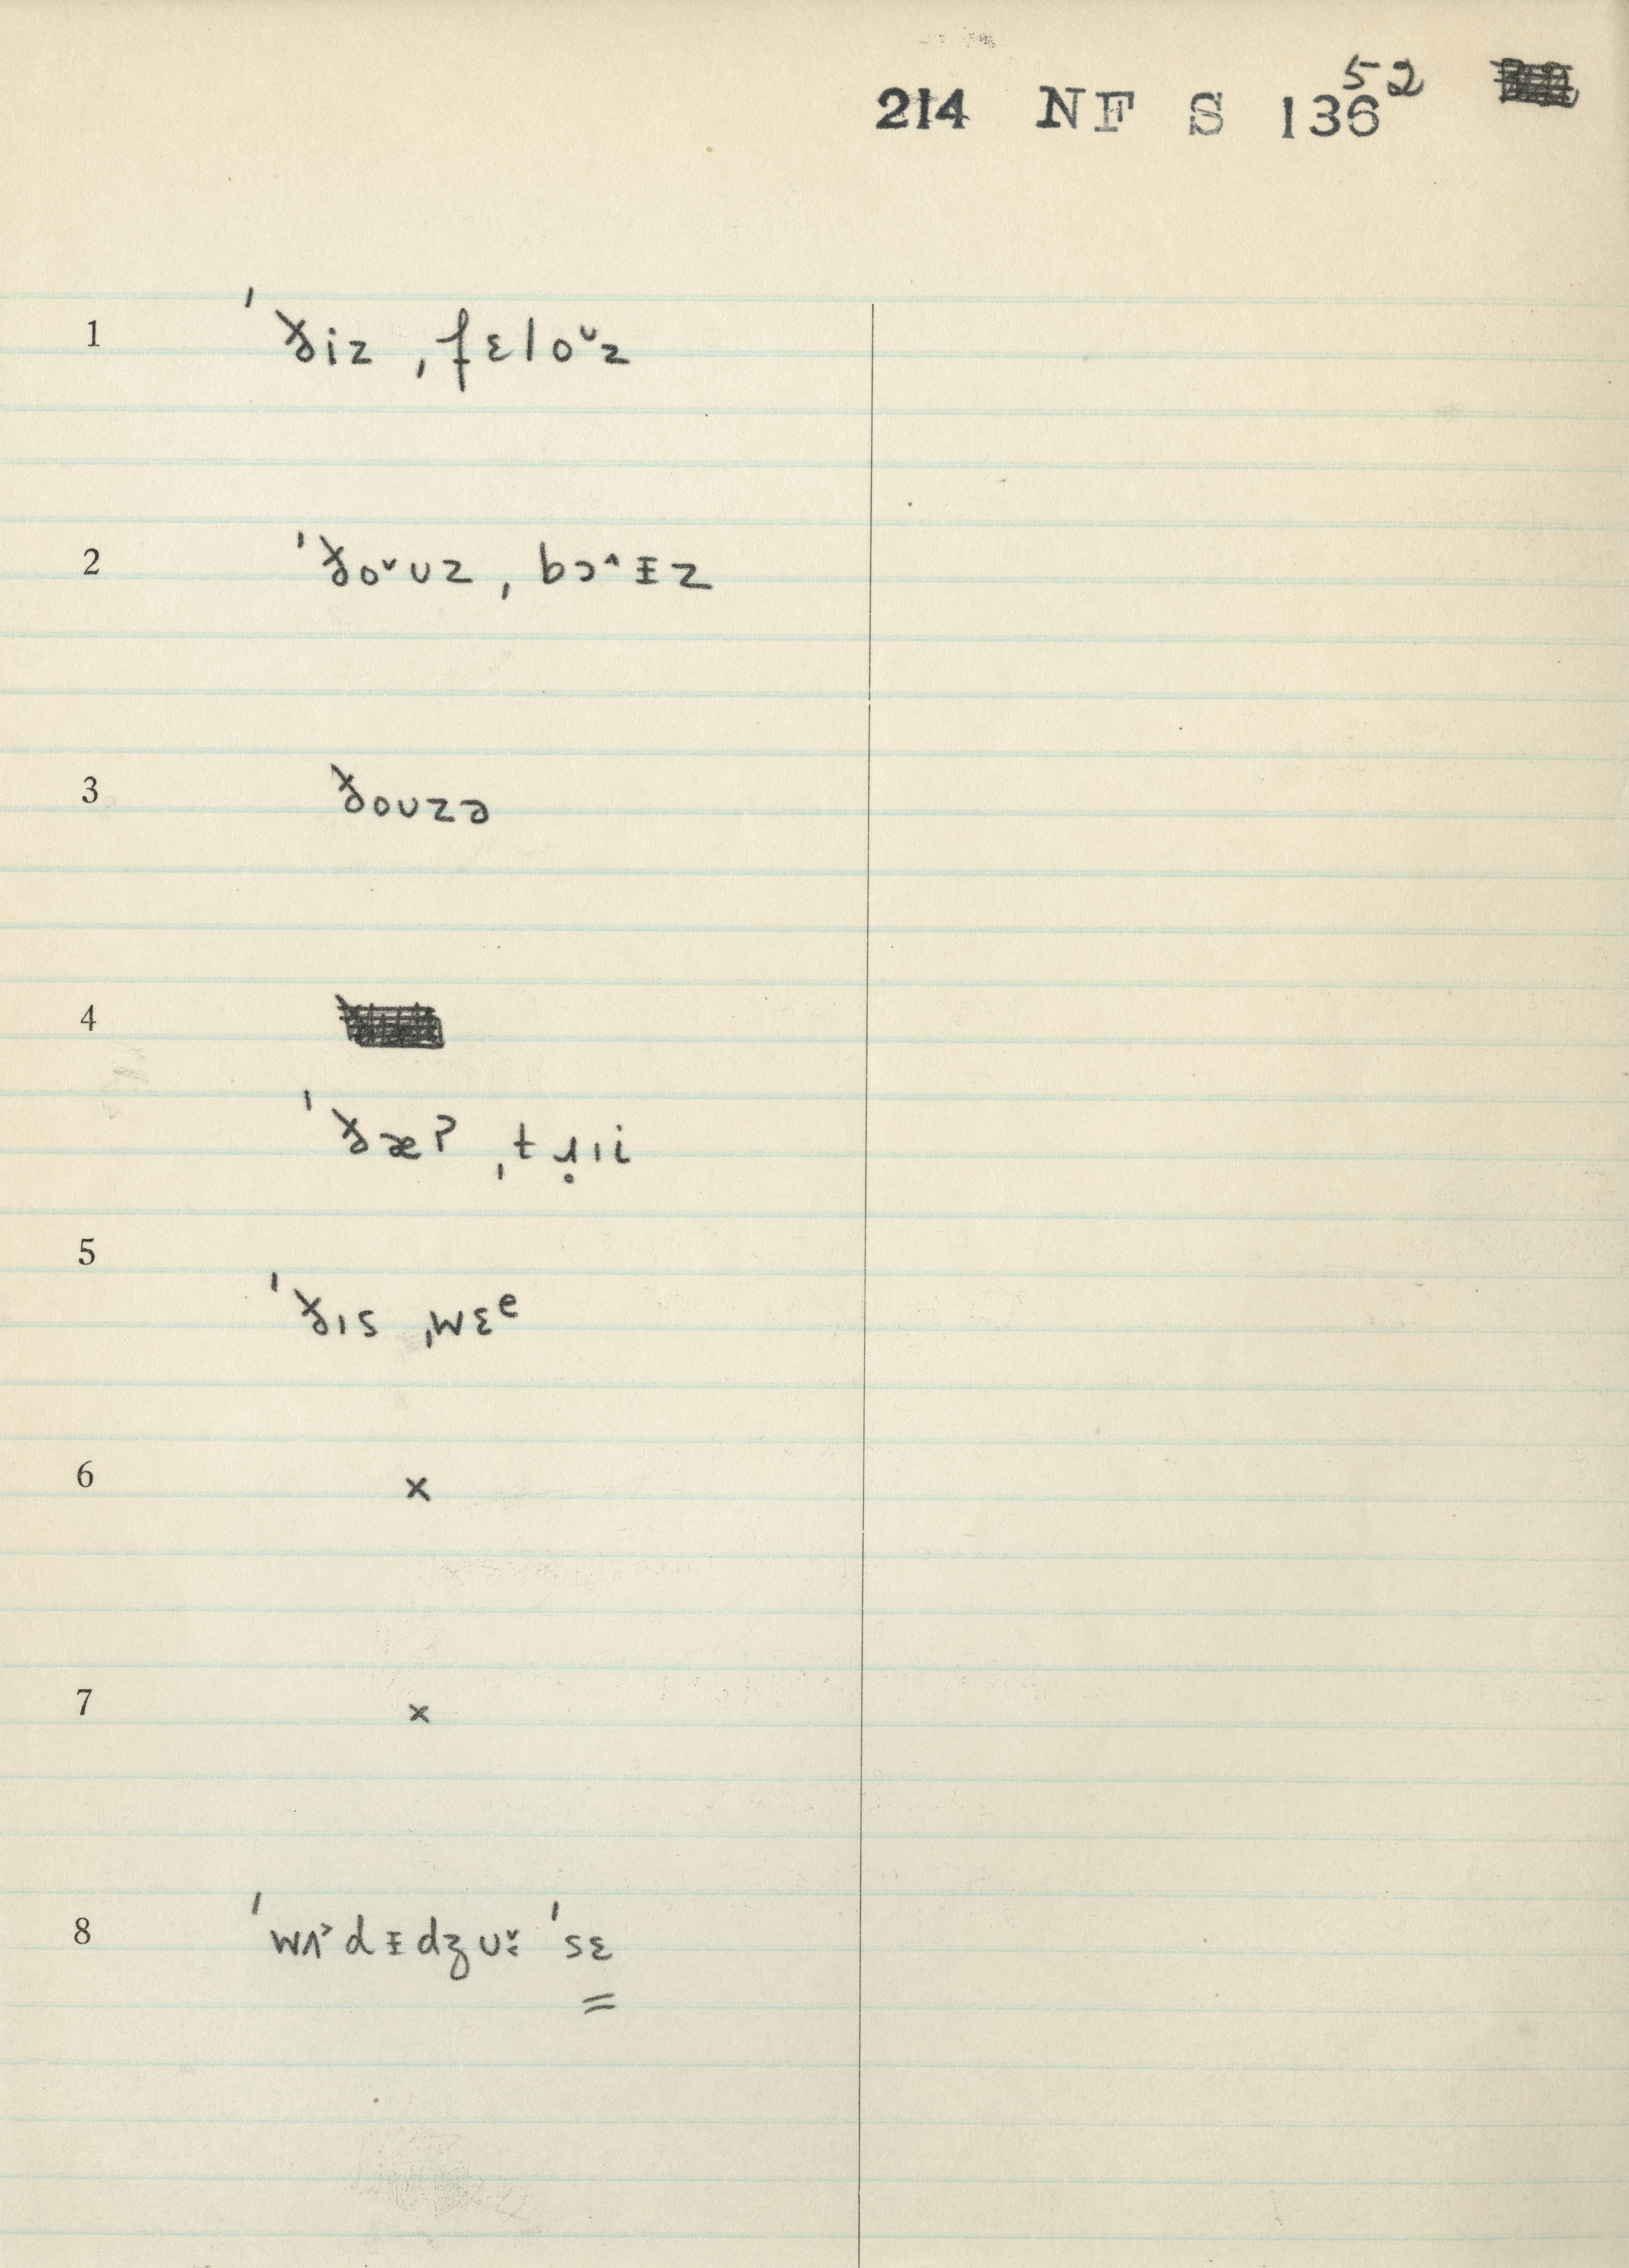 52
214 NF S 136
1 ˈðiz ˌfɛloᵛz
2 ˈðo˅ʊz ˌbɔ˄ᵻz
3 ðoʊzə
4
ˈðæʔ ˌtɹ̥ɪi
5
ˈðɪs ˌwɛᵉ
6 ×
7 ×
8 ˈwʌ˃dᵻdʒʊ˅ː ˈsɛ